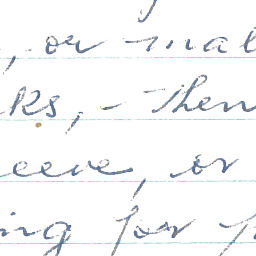 , or mal
ks, - then
eeve, or
ing for